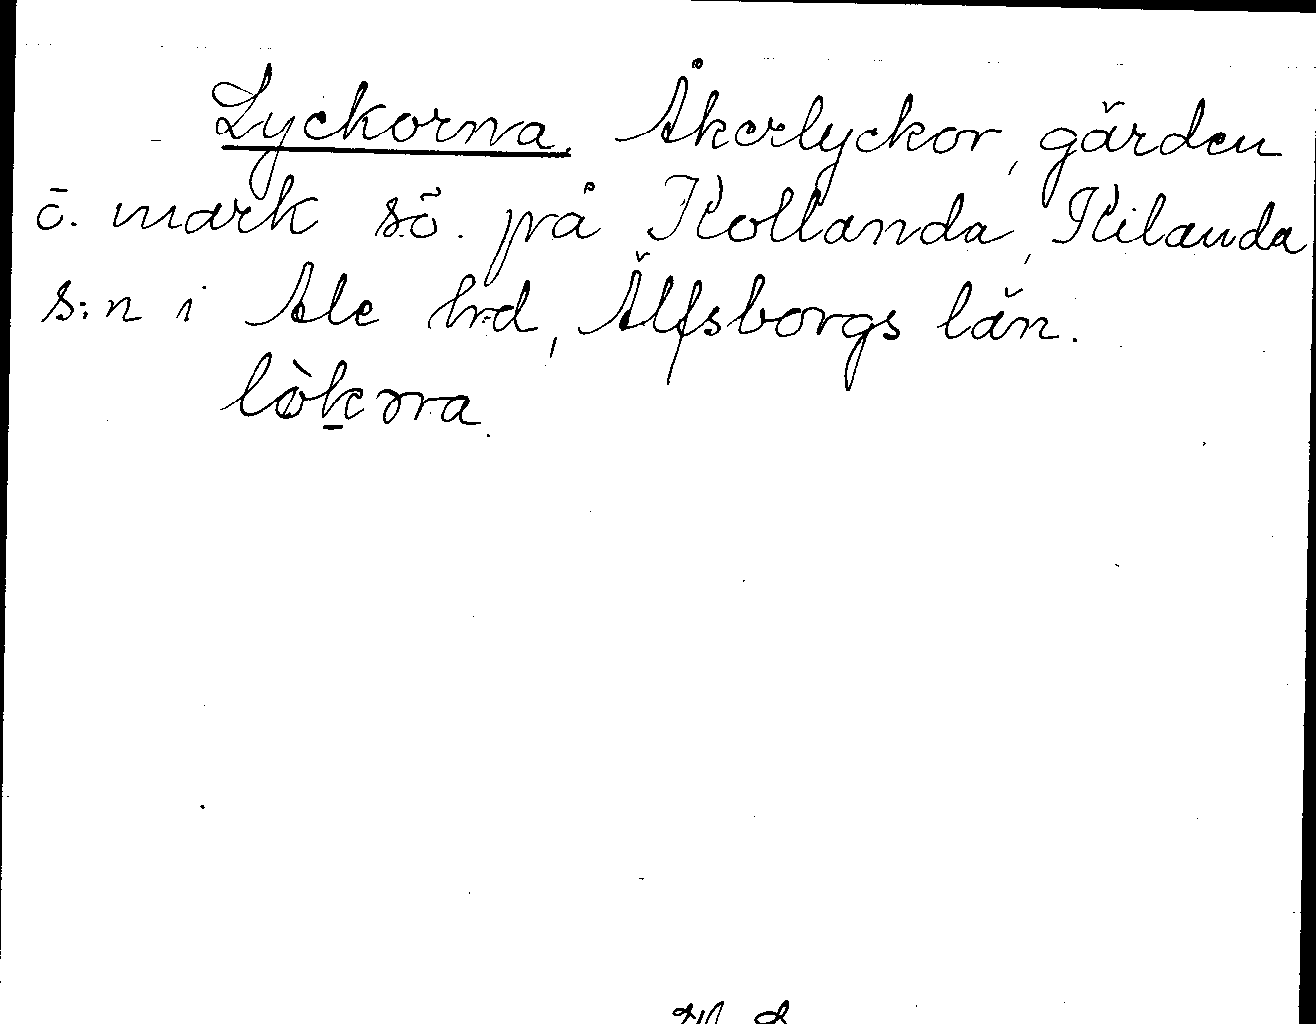 Lyckorna. Åkerlyckor, gärden
ö. mark sö. på Kollanda, Kilanda
s:n i Ale hrd, Älfsborgs län.